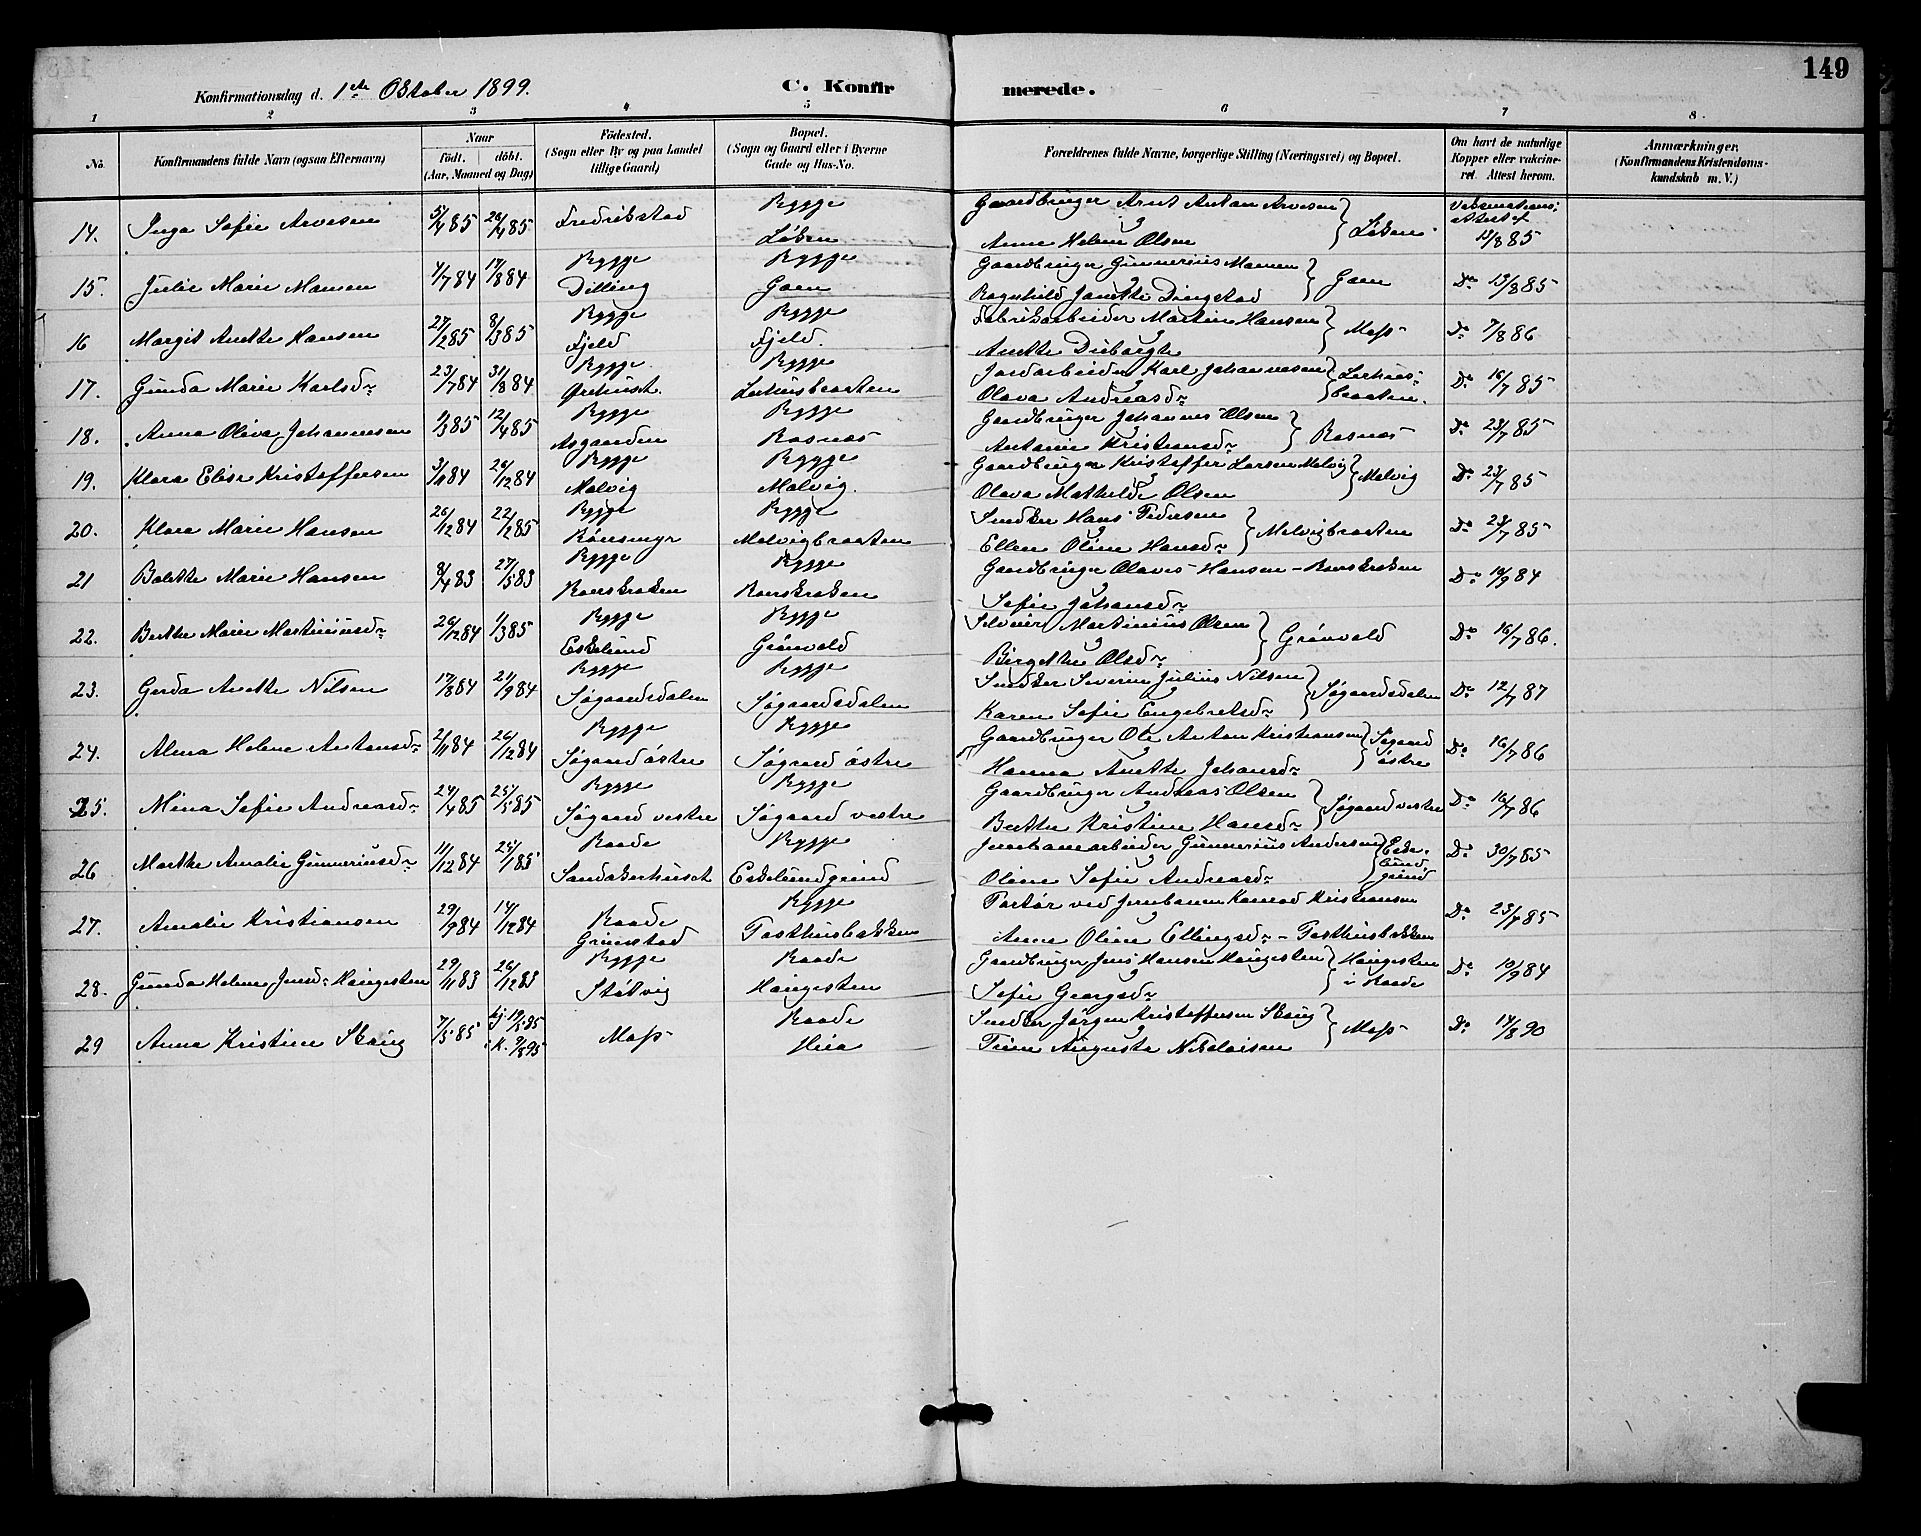 149
Konfirmationsdag d. 1ste Oktober 1899.
C. Konfirmerede.
1 2 3 4 5 6 7 8
No.
Konfirmandens fulde Navn (ogsaa Efternavn)
Naar
födt. döbt.
(Aar, Maaned og Dag)
Födested.
(Sogn eller By og paa Landet
tillige Gaard)
Bopæl.
(Sogn og Gaard eller i Byerne
Gade og Hus-No.
Forældrenes fulde Navne, borgerlige Stilling (Næringsvei) og Bopæl.
Om havt de naturlige
Kopper eller vakcine-
ret. Attest herom.
Anmærkninger.
(Konfirmandens Kristendoms-
kundskab m. V.)
14. Inga Sofie Arvesen 5/4 85 26/4 85 Fredrikstad Rygge Løken Gaardbruger Arnt Anton Arvesen Anne Helene Olsen Løken Vaksinations-attest af 13/8 85
15. Julie Marie Mamen 4/7 84 17/8 84 Rygge Dilling Rygge Gaen Gaardbruger Gunnerius Mamen Ragnhild Janette Dingstad Gaen Do 13/8 85
16 Margit Anette Hansen 27/2 85 8/3 85 Rygge Fjeld Rygge Fjeld. Fabrikarbeider Martin Hansen Anette Moss Do 7/8 86
17. Gunda Marie Karlsdr 23/7 84 31/8 84 Rygge Rygge Lerhusbraaten Jordarbeider Karl Johannesen Olava Andreasdr Lerhusbraaten. Do 16/7 85
18. Anna Oliva Johannesen 1/3 85 12/4 85 Rygge Aagaarden Rygge Rosnæs Gaardbruger Johannes Olsen Antonie Kristiansdr Rosnæs Do 23/7 85
19. Klara Elise Kristoffersen 3/11 84 26/12 84 Rygge Melvig Rygge Melvig. Gaardbruger Kristoffer Larsen Melvig Olava Mathilde Olsen Melvig Do 23/7 85
20. Klara Marie Hansen 26/12 84 22/2 85 Rygge Rygge Melvigbraaten Snedker Hans Pedersen Ellen Oline Hansdr Melvigbraaten Do 23/7 85
21 Bolette Marie Hansen 8/4 83 27/5 83 Rygge Roerskroken Rygge Roerskroken Gaardbruger Olaves Hansen - Roerskroken Sofie Johansdr Do 18/9 84
22. Berthe Marie Martiniusdr 26/12 84 1/3 85 Rygge Eskelund Rygge Grønvold Selveier Martinius Olsen Birgithe Olsdr Grønvold Do 16/7 86.
23. Gerda Anette Nilsen 17/8 84 21/9 84 Rygge Søgaardsdalen Rygge Søgaardsdalen Snedker Severin Julius Nilsen Karen Sofie Engebretsdr Søgaardsdalen Do 12/7 87
24. Alma Helene Antonsdr 2/11 84 26/12 84 Rygge Søgaard østre Rygge Søgaard østre Gaardbruger Ole Anton Kristiansen Hanna Anette Johansdr Søgaard østre Do 16/7 86
25. Mina Sofie Andreasdr 24/4 85 25/5 85 Rygge Søgaard vestre Rygge Søgaard vestre Gaardbruger Andreas Olsen Berthe Kristine Hansdr Søgaard vestre Do 16/7 86
26 Marthe Amalie Gunneriusdr 11/12 84 25/1 85 Raade Sandakerhuset Rygge Eskelundgrind Jernbanearbeider Gunnerius Andersen Oline Sofie Andreasdr Eskelundgrind Do 30/7 85
27. Amalie Kristiansen 29/9 84 14/12 84 Raade Grimstad Rygge Posthusbakken Portør ved Jernbanen Konrad Kristiansen Anne Oline Ellingsdr - Posthusbakken Do 23/7 85
28. Gunda Helene Jensdr Haugesten 29/11 83 26/12 83 Rygge Støtvig Raade Haugesten Gaardbruger Jens Hansen Haugesten Sofie Georgsdr Haugesten i Raade Do 10/9 84
29 Anna Kristine Skaug 7/5 85 hj. 17/5 85 i K. 9/8 95 Moss Raade Huia Snedker Jørgen Kristoffersen Skaug Trine Augusta Nikolaisen Moss Do 14/8 90